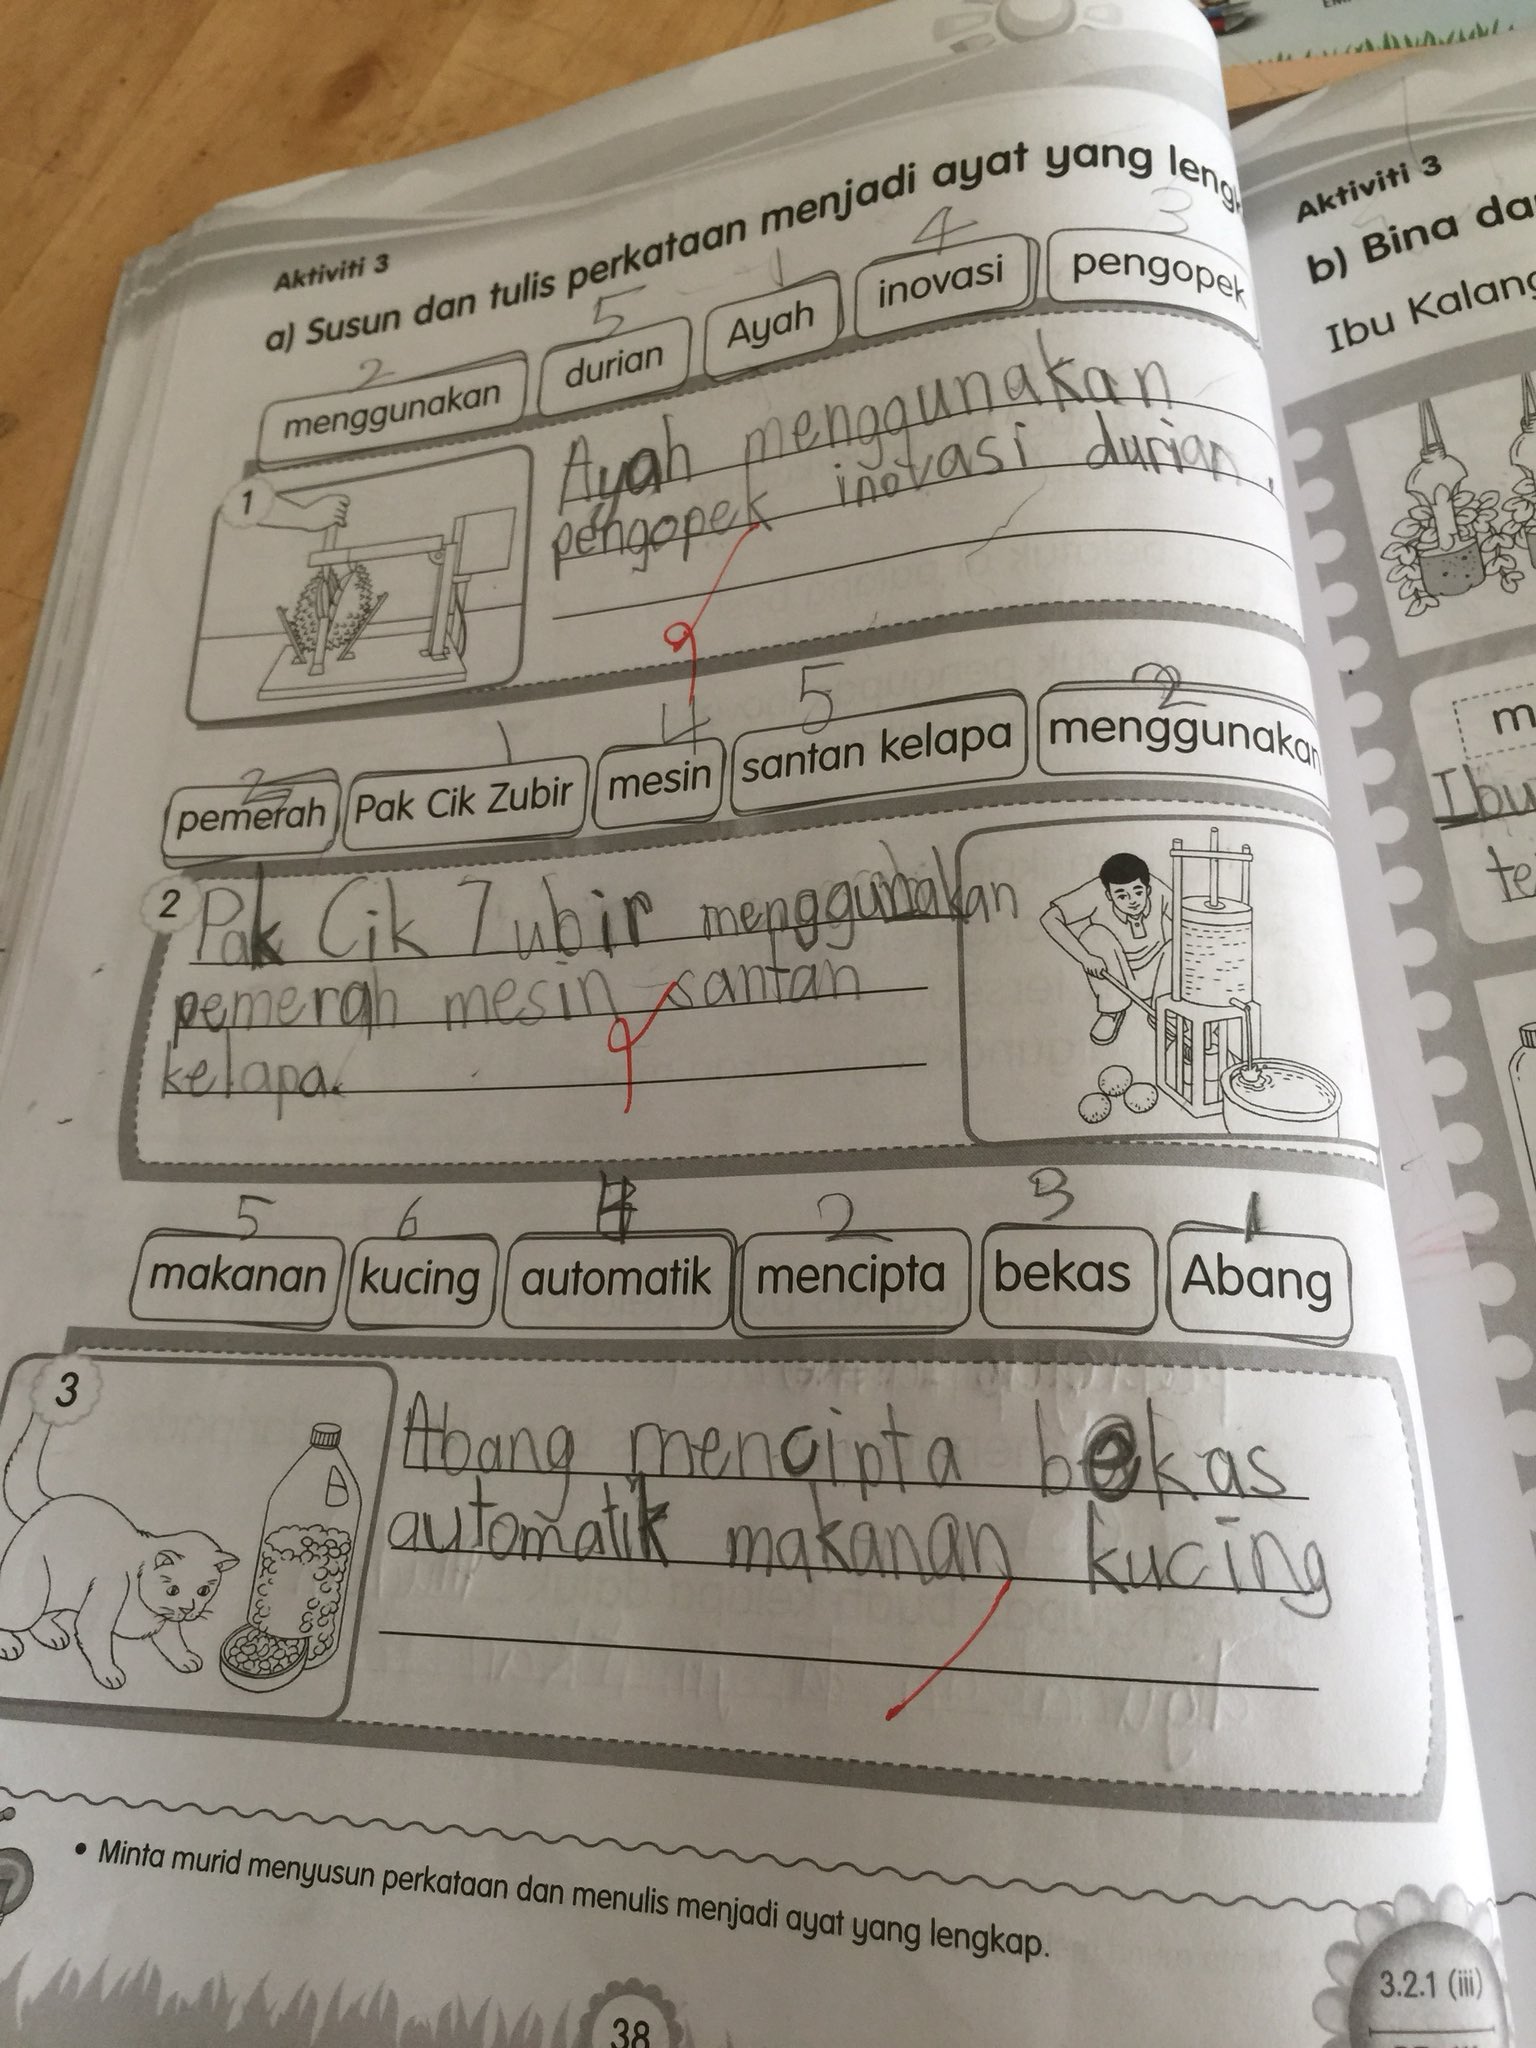 Aktiviti 3
a) Susun dan tulis perkataan menjadi ayat yang
2 5 1 4 3
menggunakan durian Ayah inovasi pengopek
1
Ayah menggunakan
pengopek inovasi durian.
2 1 4 5 2
pemerah Pak Cik Zubir mesin santan kelapa menggunakan
2
Pak Cik Zubir menggunakan
pemerah mesin santan
kelapa.
5 6 4 2 3 1
makanan kucing automatik mencipta bekas Abang
3
Abang mencipta bekas
automatik makanan kucing
• Minta murid menyusun perkataan dan menulis menjadi ayat yang lengkap.
38
3.2.1 (iii)
Aktiviti 3
b) Bina
Ibu
Ibu